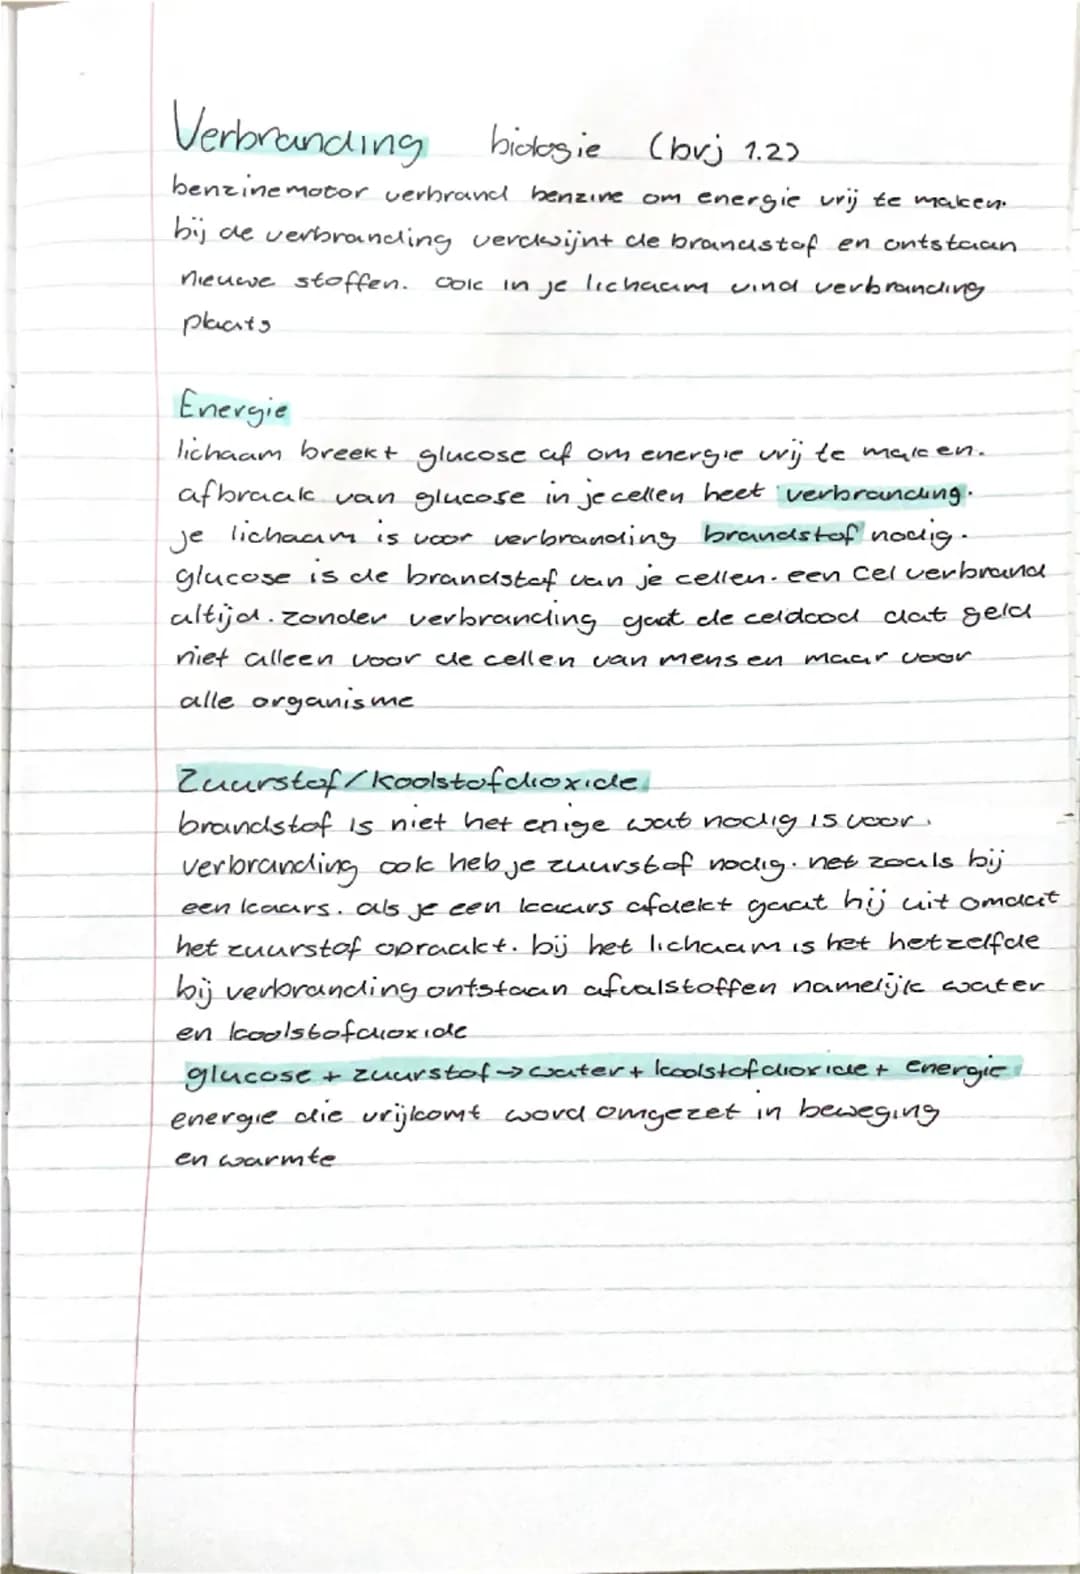 Verbranding biologie (bvj 1.2)
benzinemotor verbrand benzine om energie vrij te maken.
bij de verbranding verdwijnt de brandstof en ontstaan
nieuwe stoffen. ook in je lichaam vind verbranding
plaats
Energie
lichaam breekt glucose af om energie vrij te maken.
afbraak van glucose in je cellen heet verbranding.
je lichaam is voor verbranding brandstof nodig.
glucose is de brandstof van je cellen. een cel verbrand
altijd. zonder verbranding gaat de cel dood dat geld
niet alleen voor de cellen van mensen maar voor
alle organisme
Zuurstof/koolstofdioxide
brandstof is niet het enige wat nodig is voor
verbranding ook heb je zuurstof nodig. net zoals bij
een kaars. als je een kaars afdekt gaat hij uit omdat
het zuurstof opraakt. bij het lichaam is het hetzelfde
bij verbranding ontstaan afvalstoffen namelijk water
en koolstofdioxide
glucose + zuurstof → water + koolstofdioxide + energie
energie die vrijkomt word omgezet in beweging
en warmte